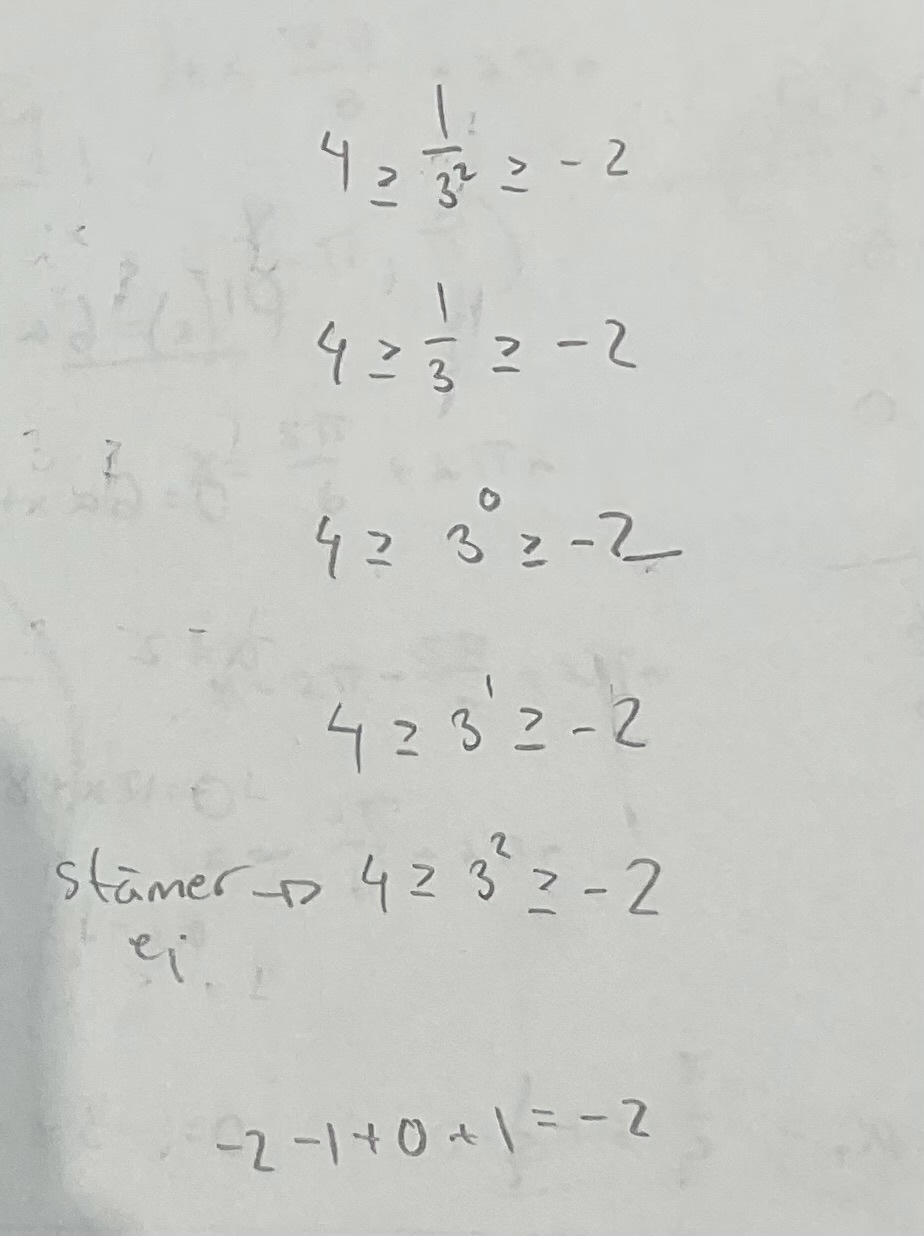 4 ≥ 1/3² ≥ -2
4 ≥ 1/3 ≥ -2
4 ≥ 3⁰ ≥ -2
4 ≥ 3¹ ≥ -2
stämer → 4 ≥ 3² ≥ -2
ej
-2 -1 + 0 + 1 = -2